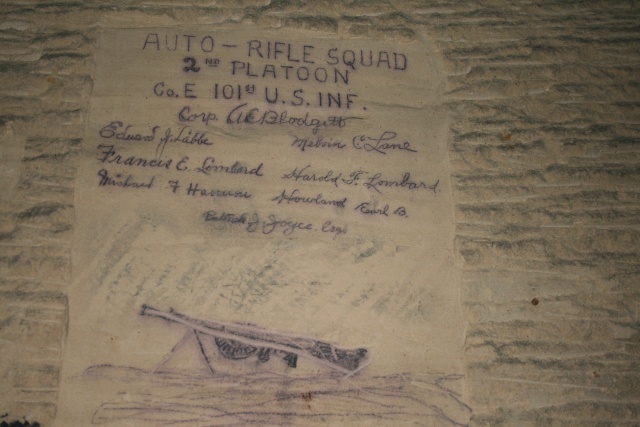 AUTO-RIFLE SQUAD
2ND PLATOON
Co. E 101st U.S. INF.
Corp. A C Blodgett
Edward J. Labbe Melvin E. Lane
Francis E. Lombard Harold F. Lombard.
Michael F Howland Earl B.
J. Joyce. Esq.